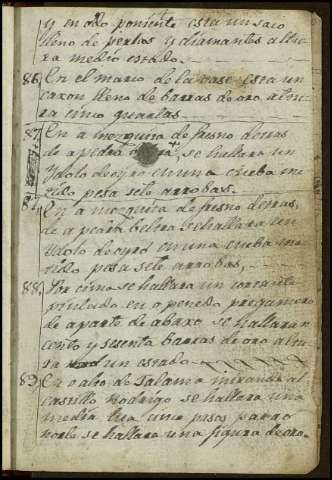 y en otto poniente esta un saco
lleno de perlas y diamantes altu-
ra medio estado.
86. En el marco de la base esta un
caxon lleno de barras de oro altu
ra cinco quartas.
87. En a mezquina de fresno detras
de a pedra se hallara un
Ydolo de oyro en una cueba me
tido pesa sete arrobas.
87. En a mezquita de fresno detras,
de a pedra beltra se hallara un
Ydolo de oyro en una cueba me
tido pesa sete arrobas,
88, Por cima se hallara un corzante
pintado en o penedo pregumero
de a parte de abaxo se hallaran
cento y sesenta barras de oro altu
ra un estado
89. En o alto de Salama mirando al
castillo rodrigo se hallara una
media Lrea unos pasos para o
norte se hallara una figura de oro.